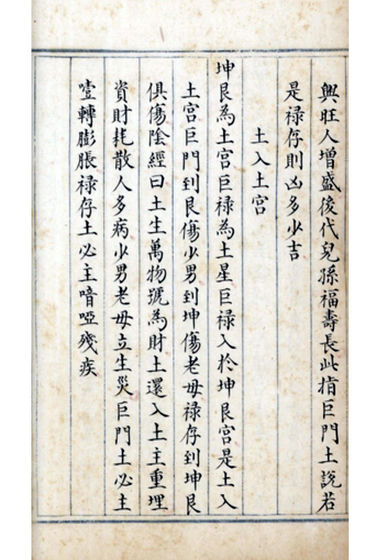 興旺人增盛後代兒孫福壽長此指巨門土說若
是祿存則凶多少吉
土入土宮
坤艮為土宮巨祿為土星巨祿入於坤艮宮是土入
土宮巨門到艮傷少男到坤傷老母祿存到坤艮
俱傷陰經曰土生萬物號為財土還入土主重埋
資財耗散人多病少男老母立生災巨門土必主
噎轉膨脹祿存土必主喑啞殘疾